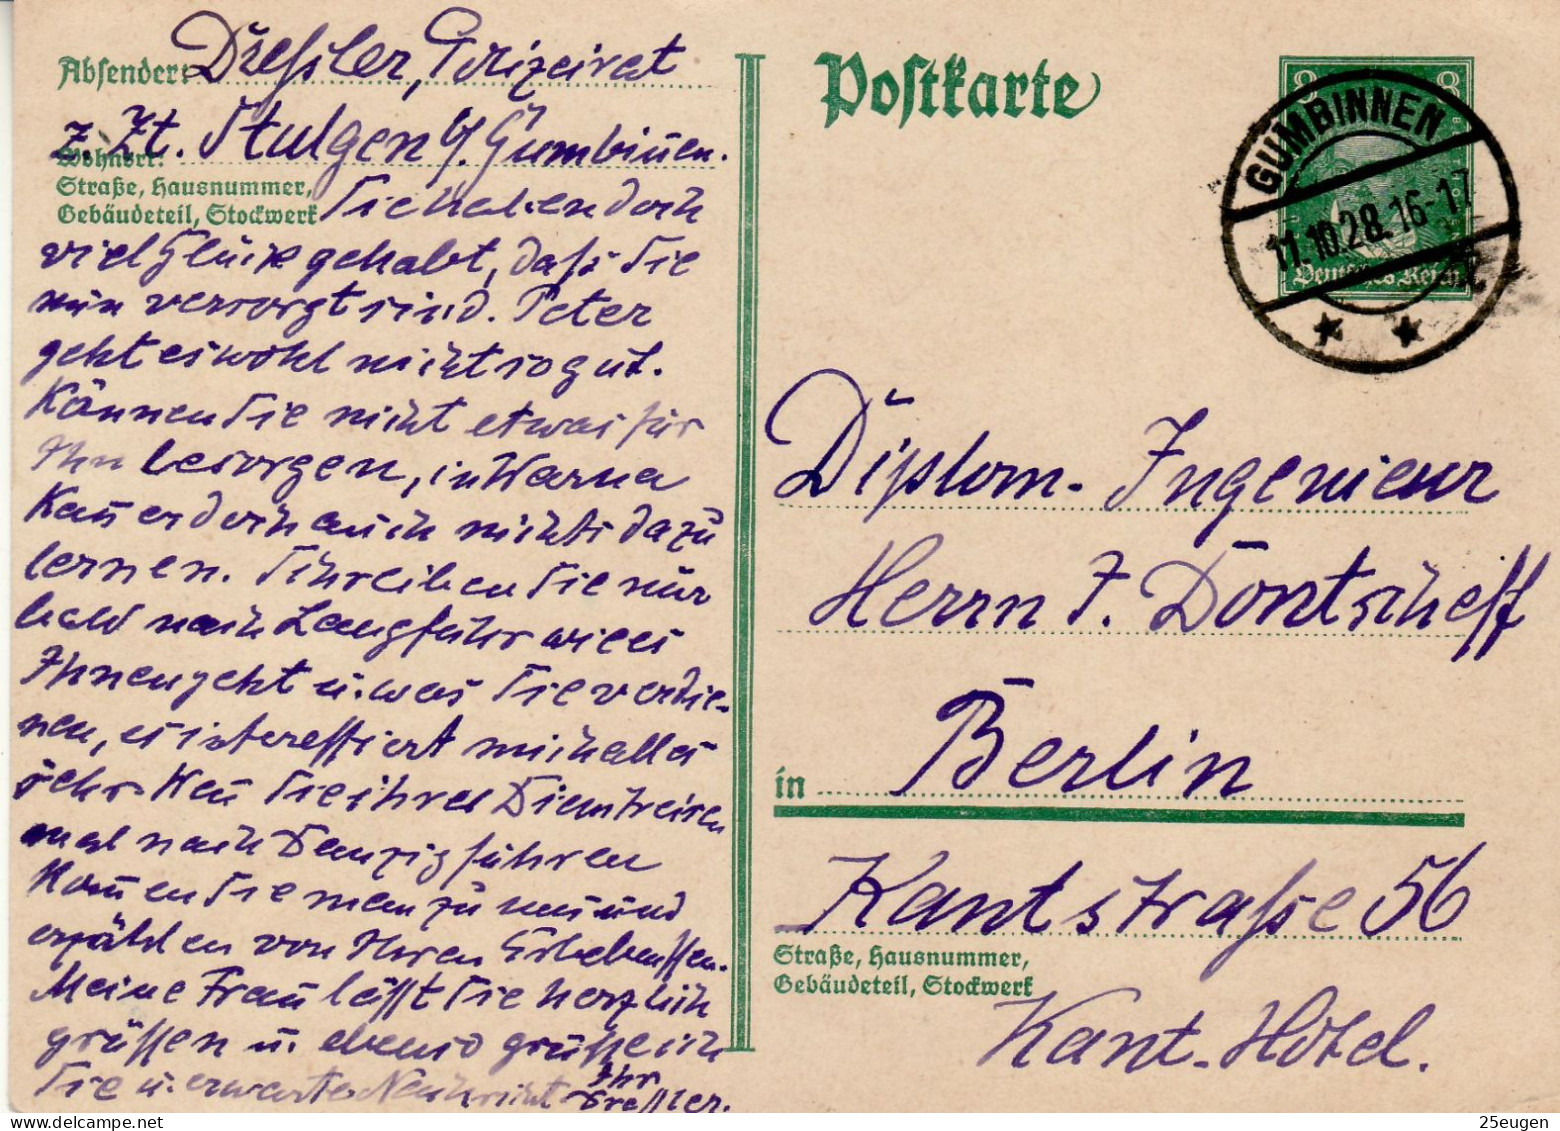 Absender: Dreßler, Polizeirat
z. Zt. Stulgen b/. Gumbiñen.
Wohnort:
Straße, Hausnummer,
Gebäudeteil, Stockwerk
Sie haben doch
viel Glück gehabt, daß Sie
nun versorgt sind. Peter
geht es wohl nicht so gut.
Können Sie nicht etwas für
Ihn besorgen, in Warna
Kañ er doch auch nichts dazu
lernen. Schreiben Sie nur
bald nach Langfuhr wie es
Ihnen geht u. was Sie verdie-
nen, es interessiert mich alles
sehr. Weñ Sie ihre Dienstreisen
mal nach Danzig führen
Kom̃en Sie man zu uns und
erzählen von Ihren Erlebenssen.
Meine Frau läßt Sie herzlich
grüssen u. ebenso grüsse ich
Sie u. erwarte Nachricht
Ihr
Dressler.
Postkarte
8 8
Deutsches Reich
GUMBINNEN
11.10.28.16-17
Diplom-Ingenieur
Herrn J. Dontscheff
in Berlin
Kantstraße 56
Straße, Hausnummer,
Gebäudeteil, Stockwerk
Kant-Hotel.
25eugen